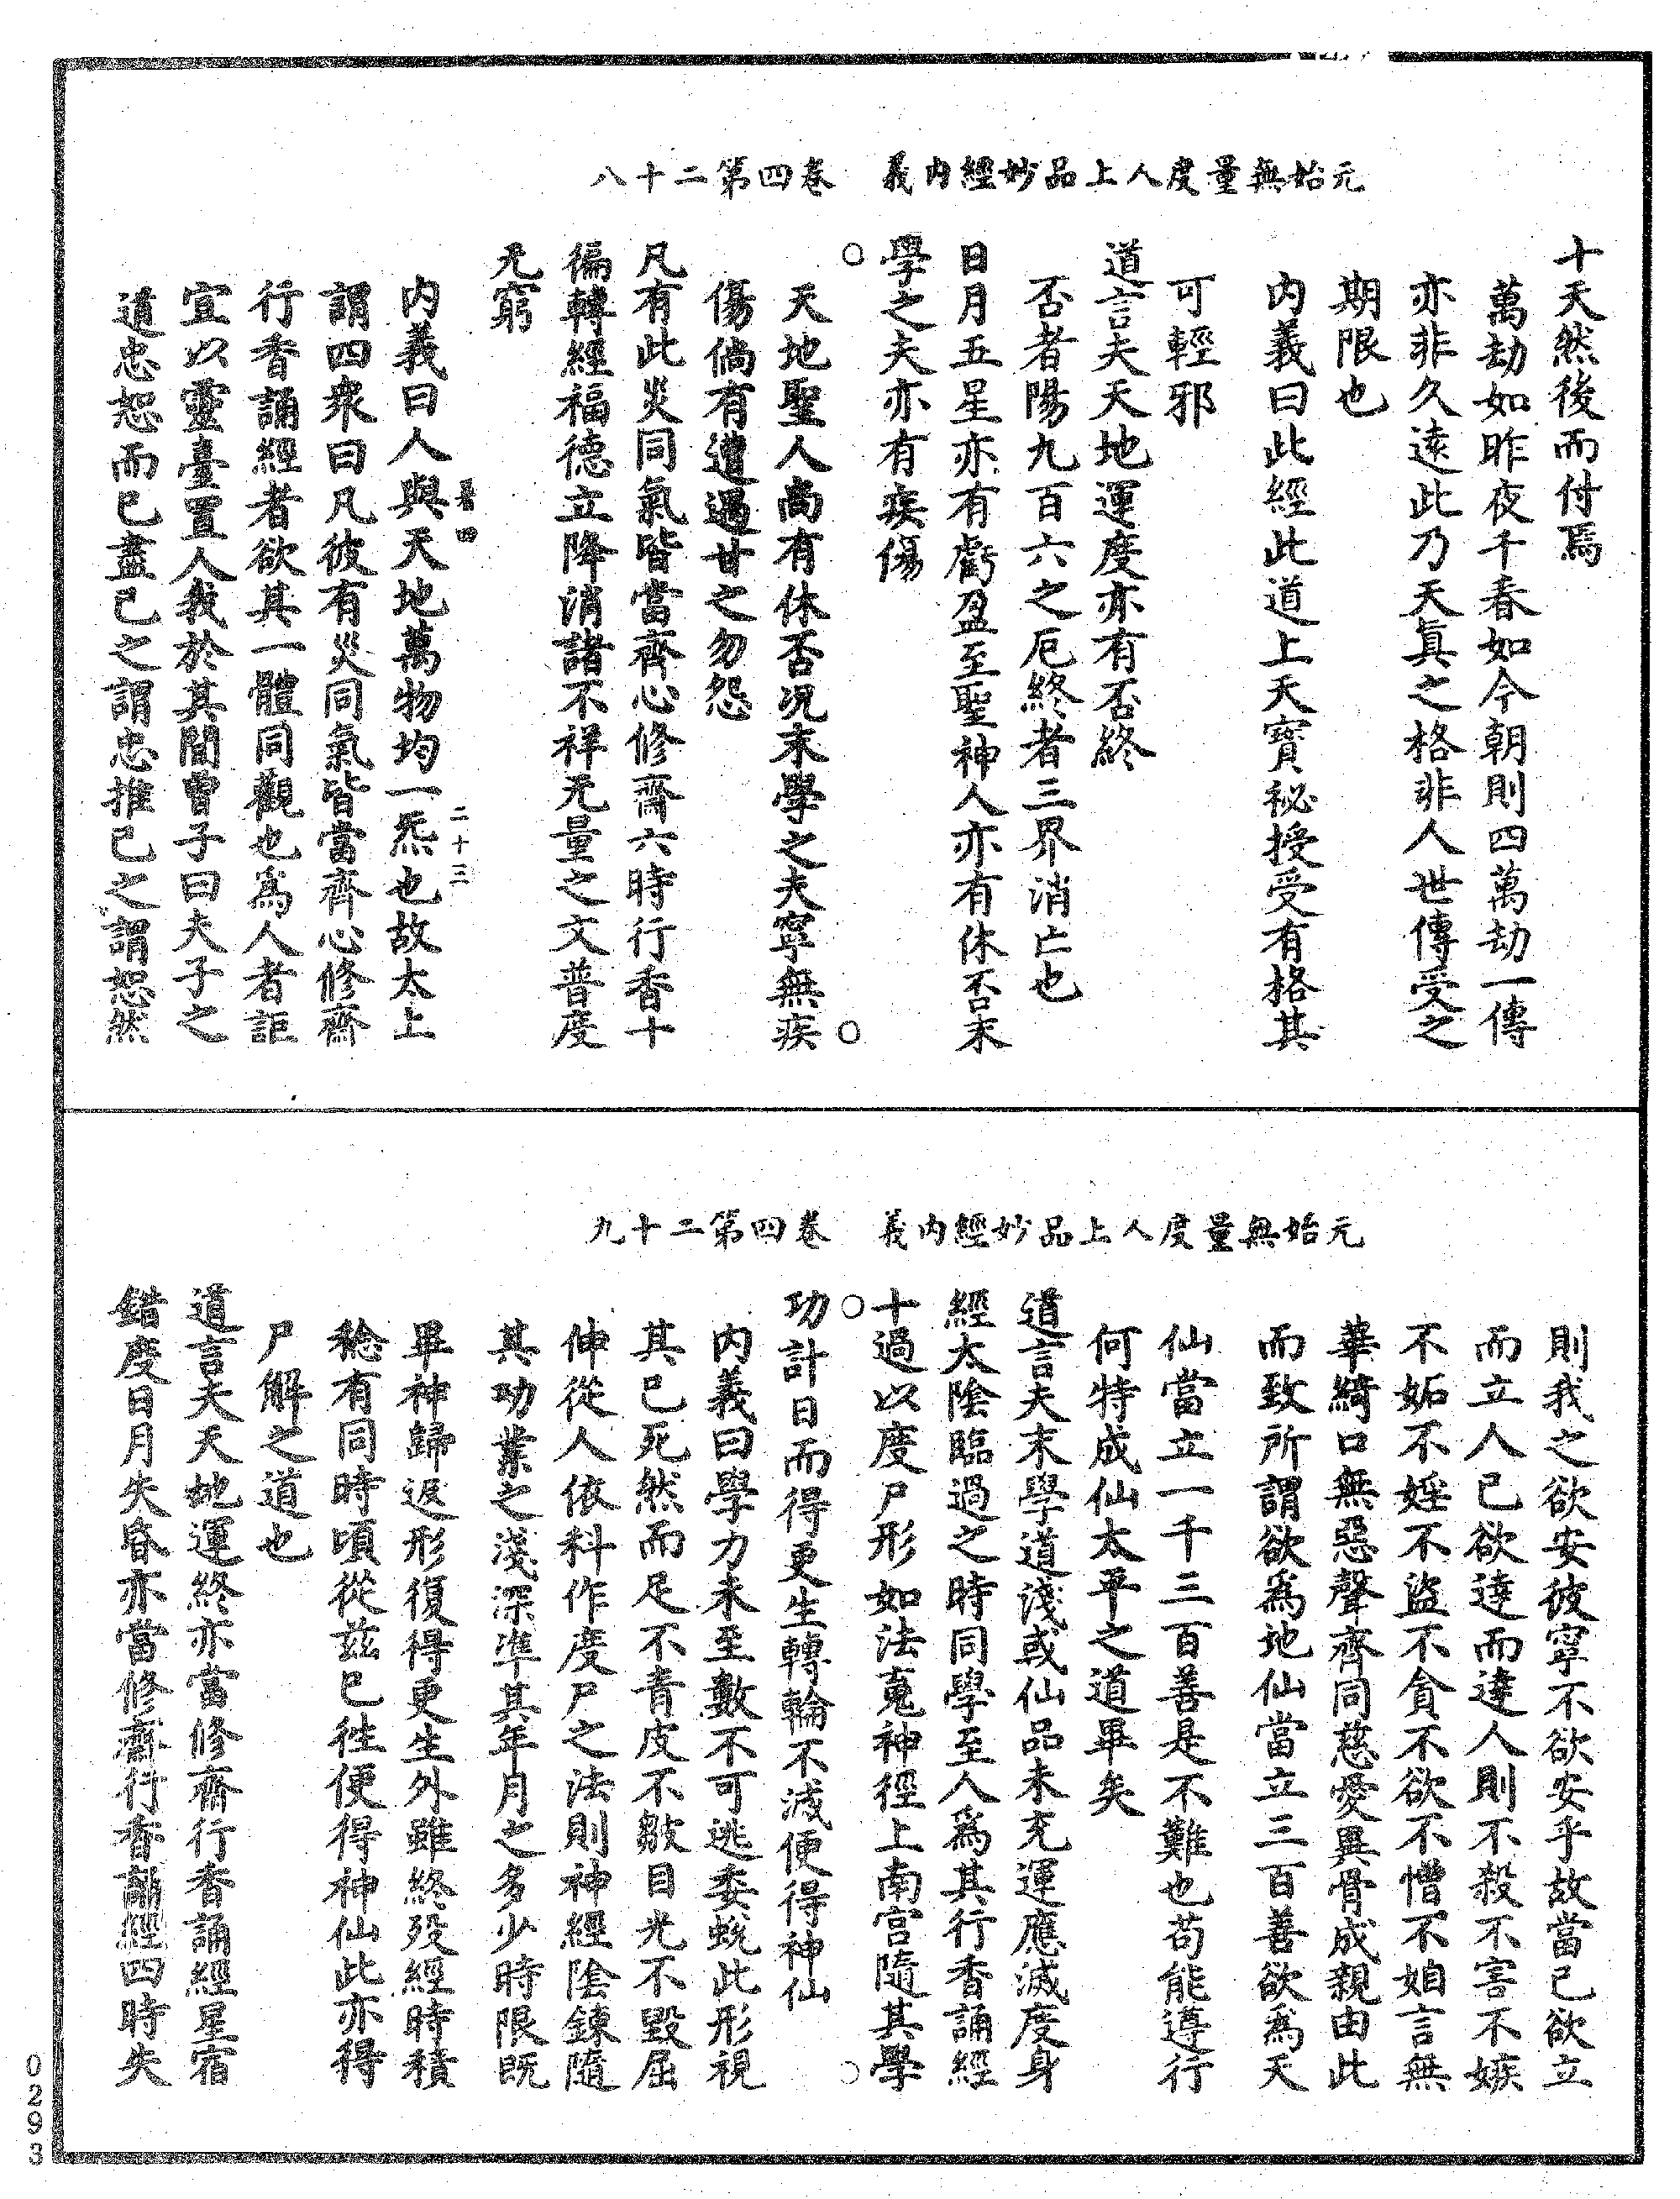 元始無量度人上品妙經內義　卷四第二十八
十天然後而付焉
萬劫如昨夜千春如今朝則四萬劫一傳
亦非久遠此乃天真之格非人世傳受之
期限也
内義曰此經此道上天寶祕授受有格其
可輕邪
道言夫天地運度亦有否終
否者陽九百六之厄終者三界消亡也
日月五星亦有虧盈至聖神人亦有休否末
學之夫亦有疾傷
天地聖人尚有休否况末學之夫寧無疾
傷倘有遭遇甘之勿怨
凡有此災同氣皆當齊心修齋六時行香十
徧轉經福德立降消諸不祥无量之文普度
无窮
二十三
内義曰人與天地萬物均一炁也故太上
謂四衆曰凡彼有災同氣皆當齊心修齋
行香誦經者欲其一體同觀也爲人者詎
宜以靈臺置人我於其間曾子曰夫子之
道忠恕而已盡己之謂忠推己之謂恕然
元始無量度人上品妙經內義　卷四第二十九
則我之欲安彼寧不欲安乎故當己欲立
而立人己欲達而達人則不殺不害不嫉
不妬不婬不盜不貪不欲不憎不妲言無
華綺口無惡聲齊同慈愛異骨成親由此
而致所謂欲爲地仙當立三百善欲爲天
仙當立一千三百善是不難也苟能遵行
何特成仙太平之道畢矣
道言夫末學道淺或仙品未充運應滅度身
經太陰臨過之時同學至人爲其行香誦經
十過以度尸形如法䰟神徑上南宮隨其學
功計日而得更生轉輪不滅便得神仙
内義曰學力未至數不可逃委蛻此形視
其已死然而足不青皮不皺目光不毀屈
伸從人依科作度尸之法則神經陰鍊隨
其功業之淺深準其年月之多少時限既
畢神歸返形復得更生外雖終歿經時積
稔有同時頃從兹已徃便得神仙此亦得
尸解之道也
道言夫天地運終亦當修齋行香誦經星宿
錯度日月失昏亦當修齋行香誦經四時失
0293